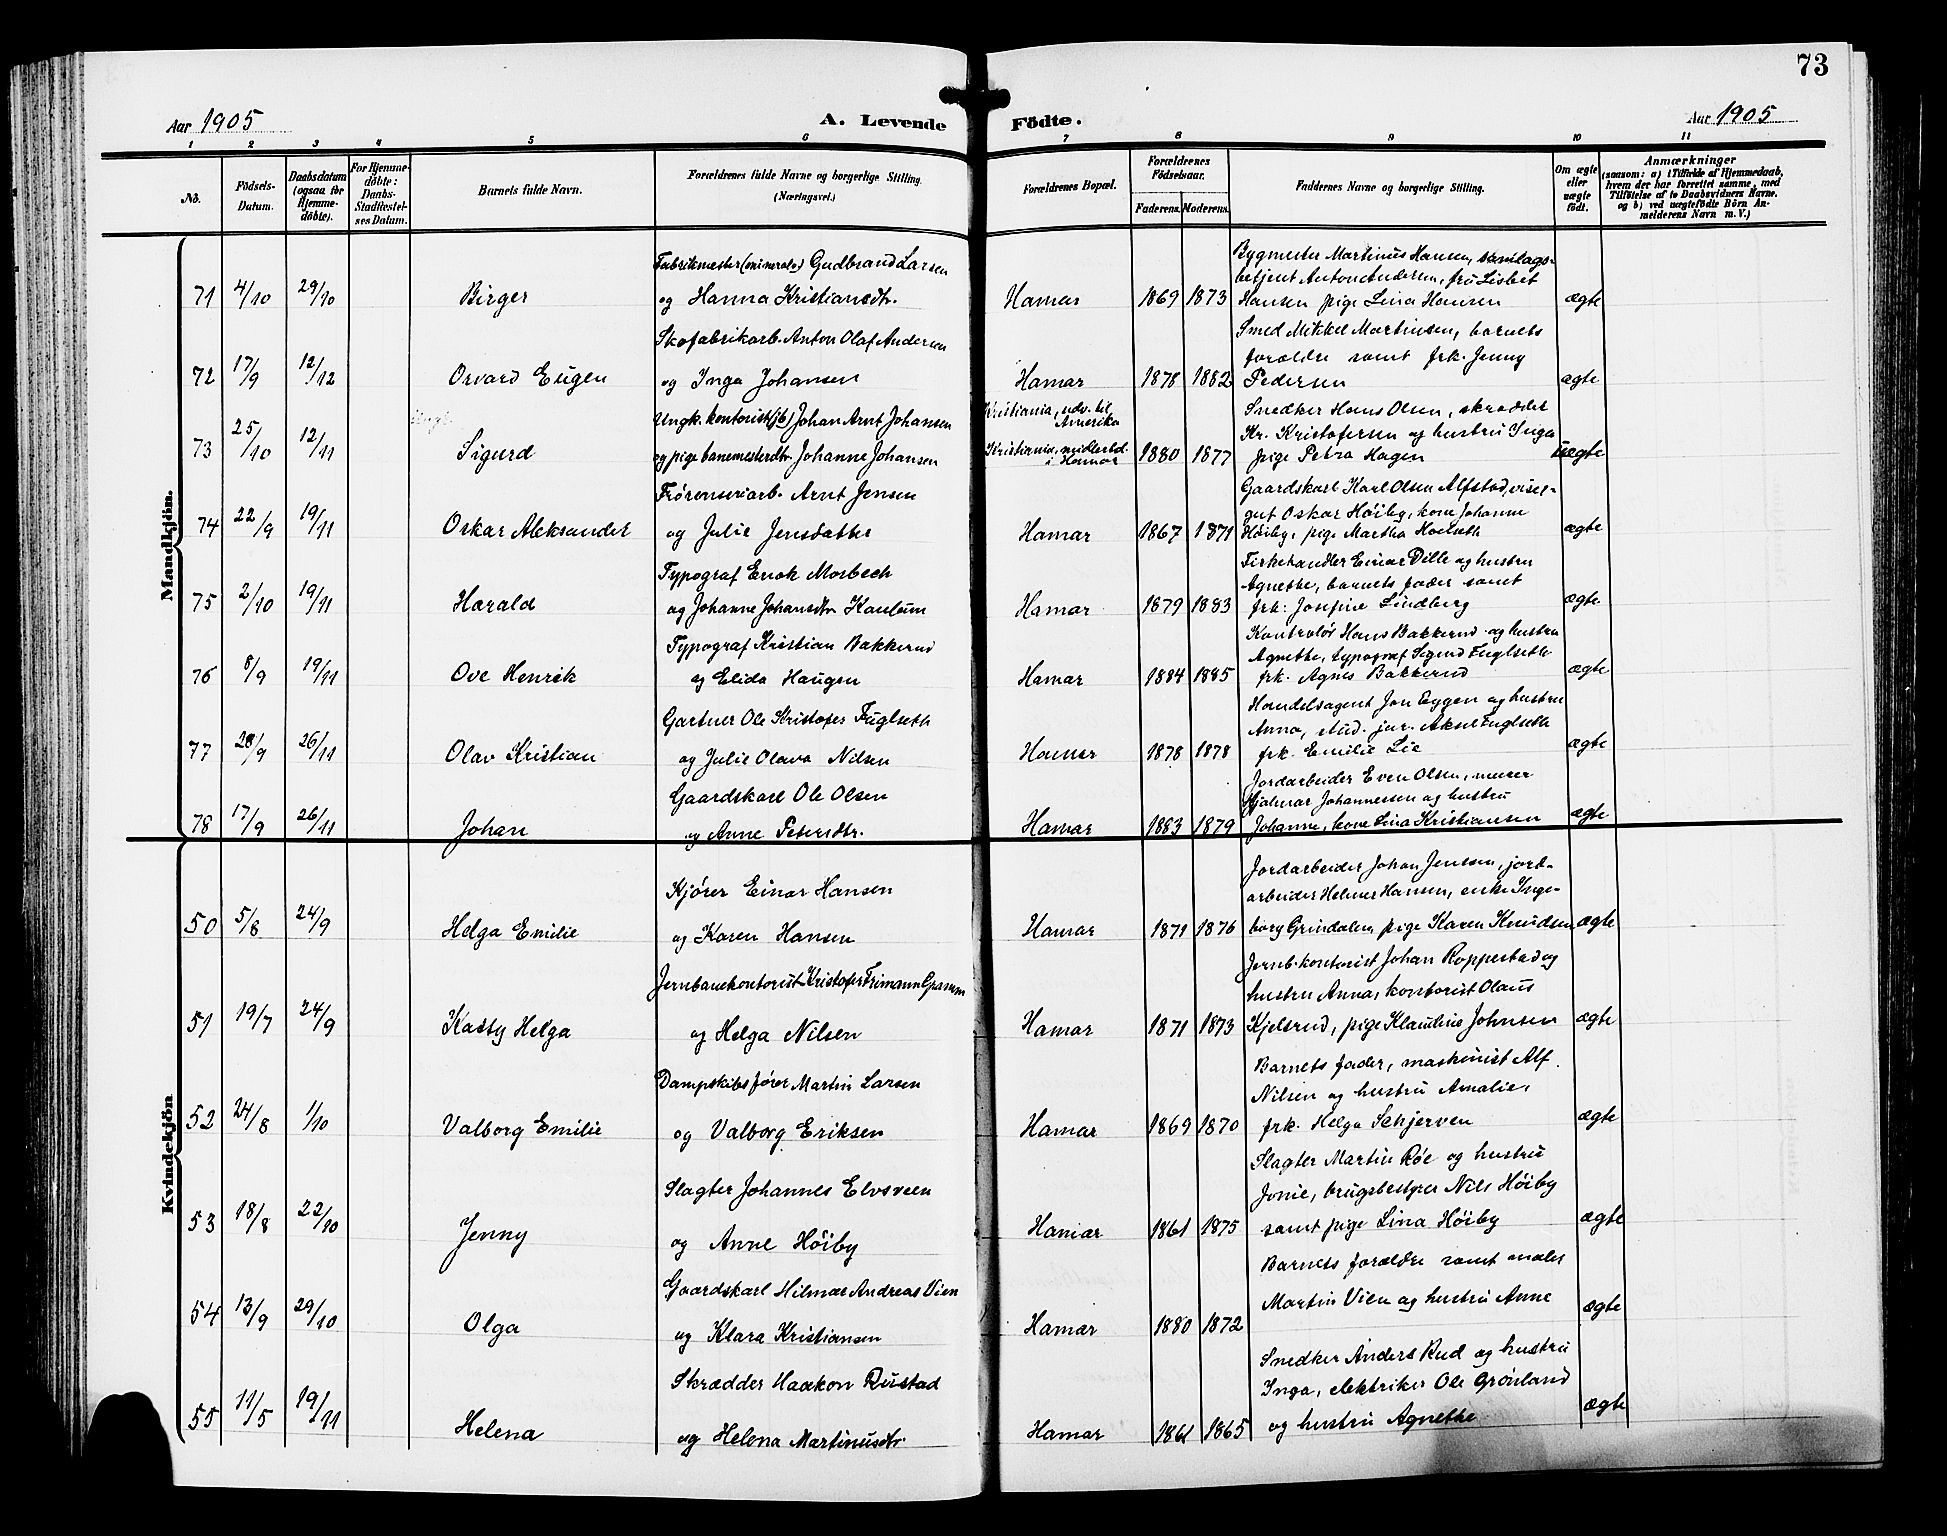 73
Aar 1905
A. Levende Födte.
Aar 1905
1 2 3 4 5 6 7 8 9 10 11
No.
Födsels-Datum.
Daabsdatum (ogsaa for Hjemme-döbte).
For Hjemme-döbte: Daabs-Stadfæstel-ses Datum.
Barnets fulde Navn.
Forældrenes fulde Navne og borgerlige Stilling. (Næringsvei.)
Forældrenes Bopæl.
Forældrenes Födselsaar.
Faderens. Moderens.
Faddernes Navne og borgerlige Stilling.
Om ægte eller uægte födt.
Anmærkninger (saasom: a) i Tilfælde af Hjemmedaab, hvem der har forrettet samme, med Tilföielse af to Daabsvidners Navne. og b) ved uægtefödte Börn An-melderens Navn m. V.)
Mandkjön.
Fabrikmester (mineralv) Gudbrand Larsen
Bygmester Martinus Hansen, samlags-
betjent Anton Andersen, fru Lisbet
71 4/10 29/10 Birger og Hanna Kristiansdtr. Hamar 1869 1873 Hansen pige Lina Hansen ægte
Skofabrikarb. Anton Olaf Andersen
Smed Mikkel Martinsen, barnets
forældre samt frk. Jenny
72 17/9 12/12 Orvard Eugen og Inga Johansen Hamar 1878 1882 Pedersen ægte
Ungk. kontorist (jb) Johan Arnt Johansen
Kristiania, udv. til Amerika
Snedker Hans Olsen, skrædder
Kr. Kristofersen og hustru Inga
73 25/10 12/11 Sigurd og pige banemesterdtr. Johanne Johansen Kristiania, midlertid. i Hamar 1880 1877 pige Petra Hagen uægte
Frörenseriarb. Arnt Jensen
Gaardskarl Karl Olsen Alfstad, visel-
gut Oskar Höiby, kone Johanne
74 22/9 19/11 Oskar Aleksander og Julie Jensdatter Hamar 1867 1871 Höiby, pige Martha Hoelseth ægte
Typograf Enok Mosbech
Fiskehandler Einar Dille og hustru
Agnethe, barnets fader samt
75 2/10 19/11 Harald og Johanne Johansdtr Kaulum Hamar 1879 1883 frk: Josefine Lindberg ægte
Typograf Kristian Bakkerud
Kontrolör Hans Bakkerud og hustru
Agnethe, typograf Sigurd Fuglseth
76 8/9 19/11 Ove Henrik og Elida Haugen Hamar 1884 1885 frk. Agnes Bakkerud ægte
Gartner Ole Kristofer Fuglseth
Handelsagent Jon Eggen og hustru
Anna, stud. jur. Aksel Fuglseth
77 28/9 26/11 Olav Kristian og Julie Olava Nilsen Hamar 1878 1878 frk. Emilie Lie ægte
Gaardskarl Ole Olsen
Jordarbeider Even Olsen, murer
Hjalmar Johannessen og hustru
78 17/9 26/11 Johan og Anne Petersdtr. Hamar 1883 1879 Johanne, kone Lina Kristiansen ægte
Kvindekjön
Kjörer Einar Hansen
Jordarbeider Johan Jensen, jord-
arbeider Helmer Hansen, enke Inge-
50 5/8 24/9 Helga Emilie og Karen Hansen Hamar 1871 1876 borg Grindalen, pige Karen Knudsen ægte
Jernbanekontorist Kristofer Frimann Gramm
Jernb.kontorist Johan Roppestad og
hustru Anna, kontorist Olaus
51 19/7 24/9 Kasty Helga og Helga Nilsen Hamar 1871 1873 Kjelsrud, pige Klaudine Johnsen ægte
Dampskibsförer Martin Larsen
Barnets fader, maskinist Alf
Nilsen og hustru Amalie,
52 24/8 1/10 Valborg Emilie og Valborg Eriksen Hamar 1869 1870 frk. Helga Schjerven ægte
Slagter Johannes Elvsveen
Slagter Martin Röe og hustru
Jonie, brugsbestyrer Nils Höiby
53 18/8 22/10 Jenny og Anne Höiby Hamar 1861 1875 samt pige Lina Höiby ægte
Gaardskarl Hilmar Andreas Vien
Barnets forældre samt maler
Martin Vien og hustru Anne
54 13/9 29/10 Olga og Klara Kristiansen Hamar 1880 1872 ægte
Skrædder Haakon Rustad
Snedker Anders Rud og hustru
Inga, elektriker Ole Grönland
55 11/5 19/11 Helena og Helena Martinusdtr. Hamar 1861 1865 og hustru Agnethe ægte